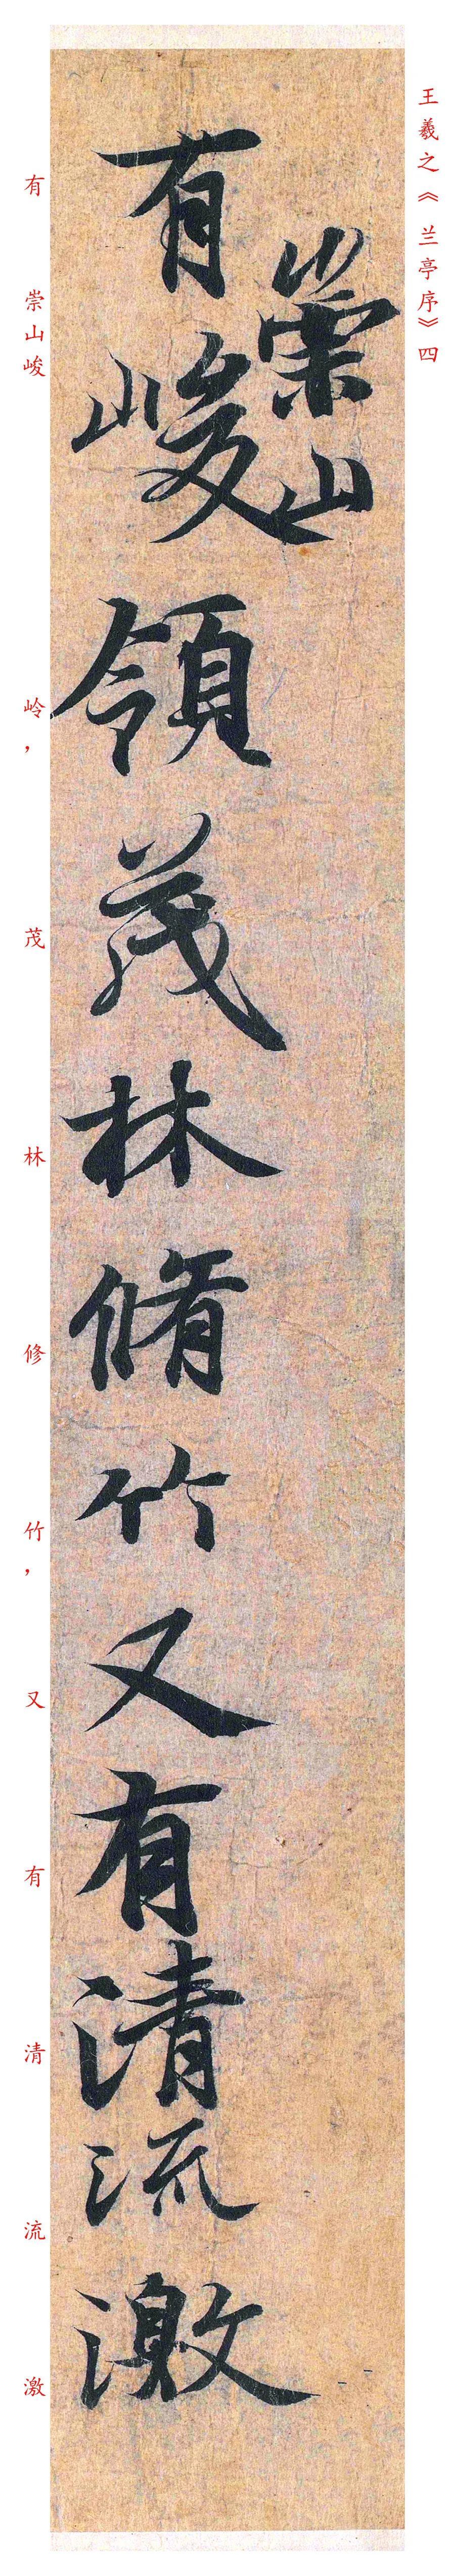 王羲之《兰亭序》四
崇山
有峻領茂林脩竹又有清流激
有崇山峻岭，茂林修竹，又有清流激